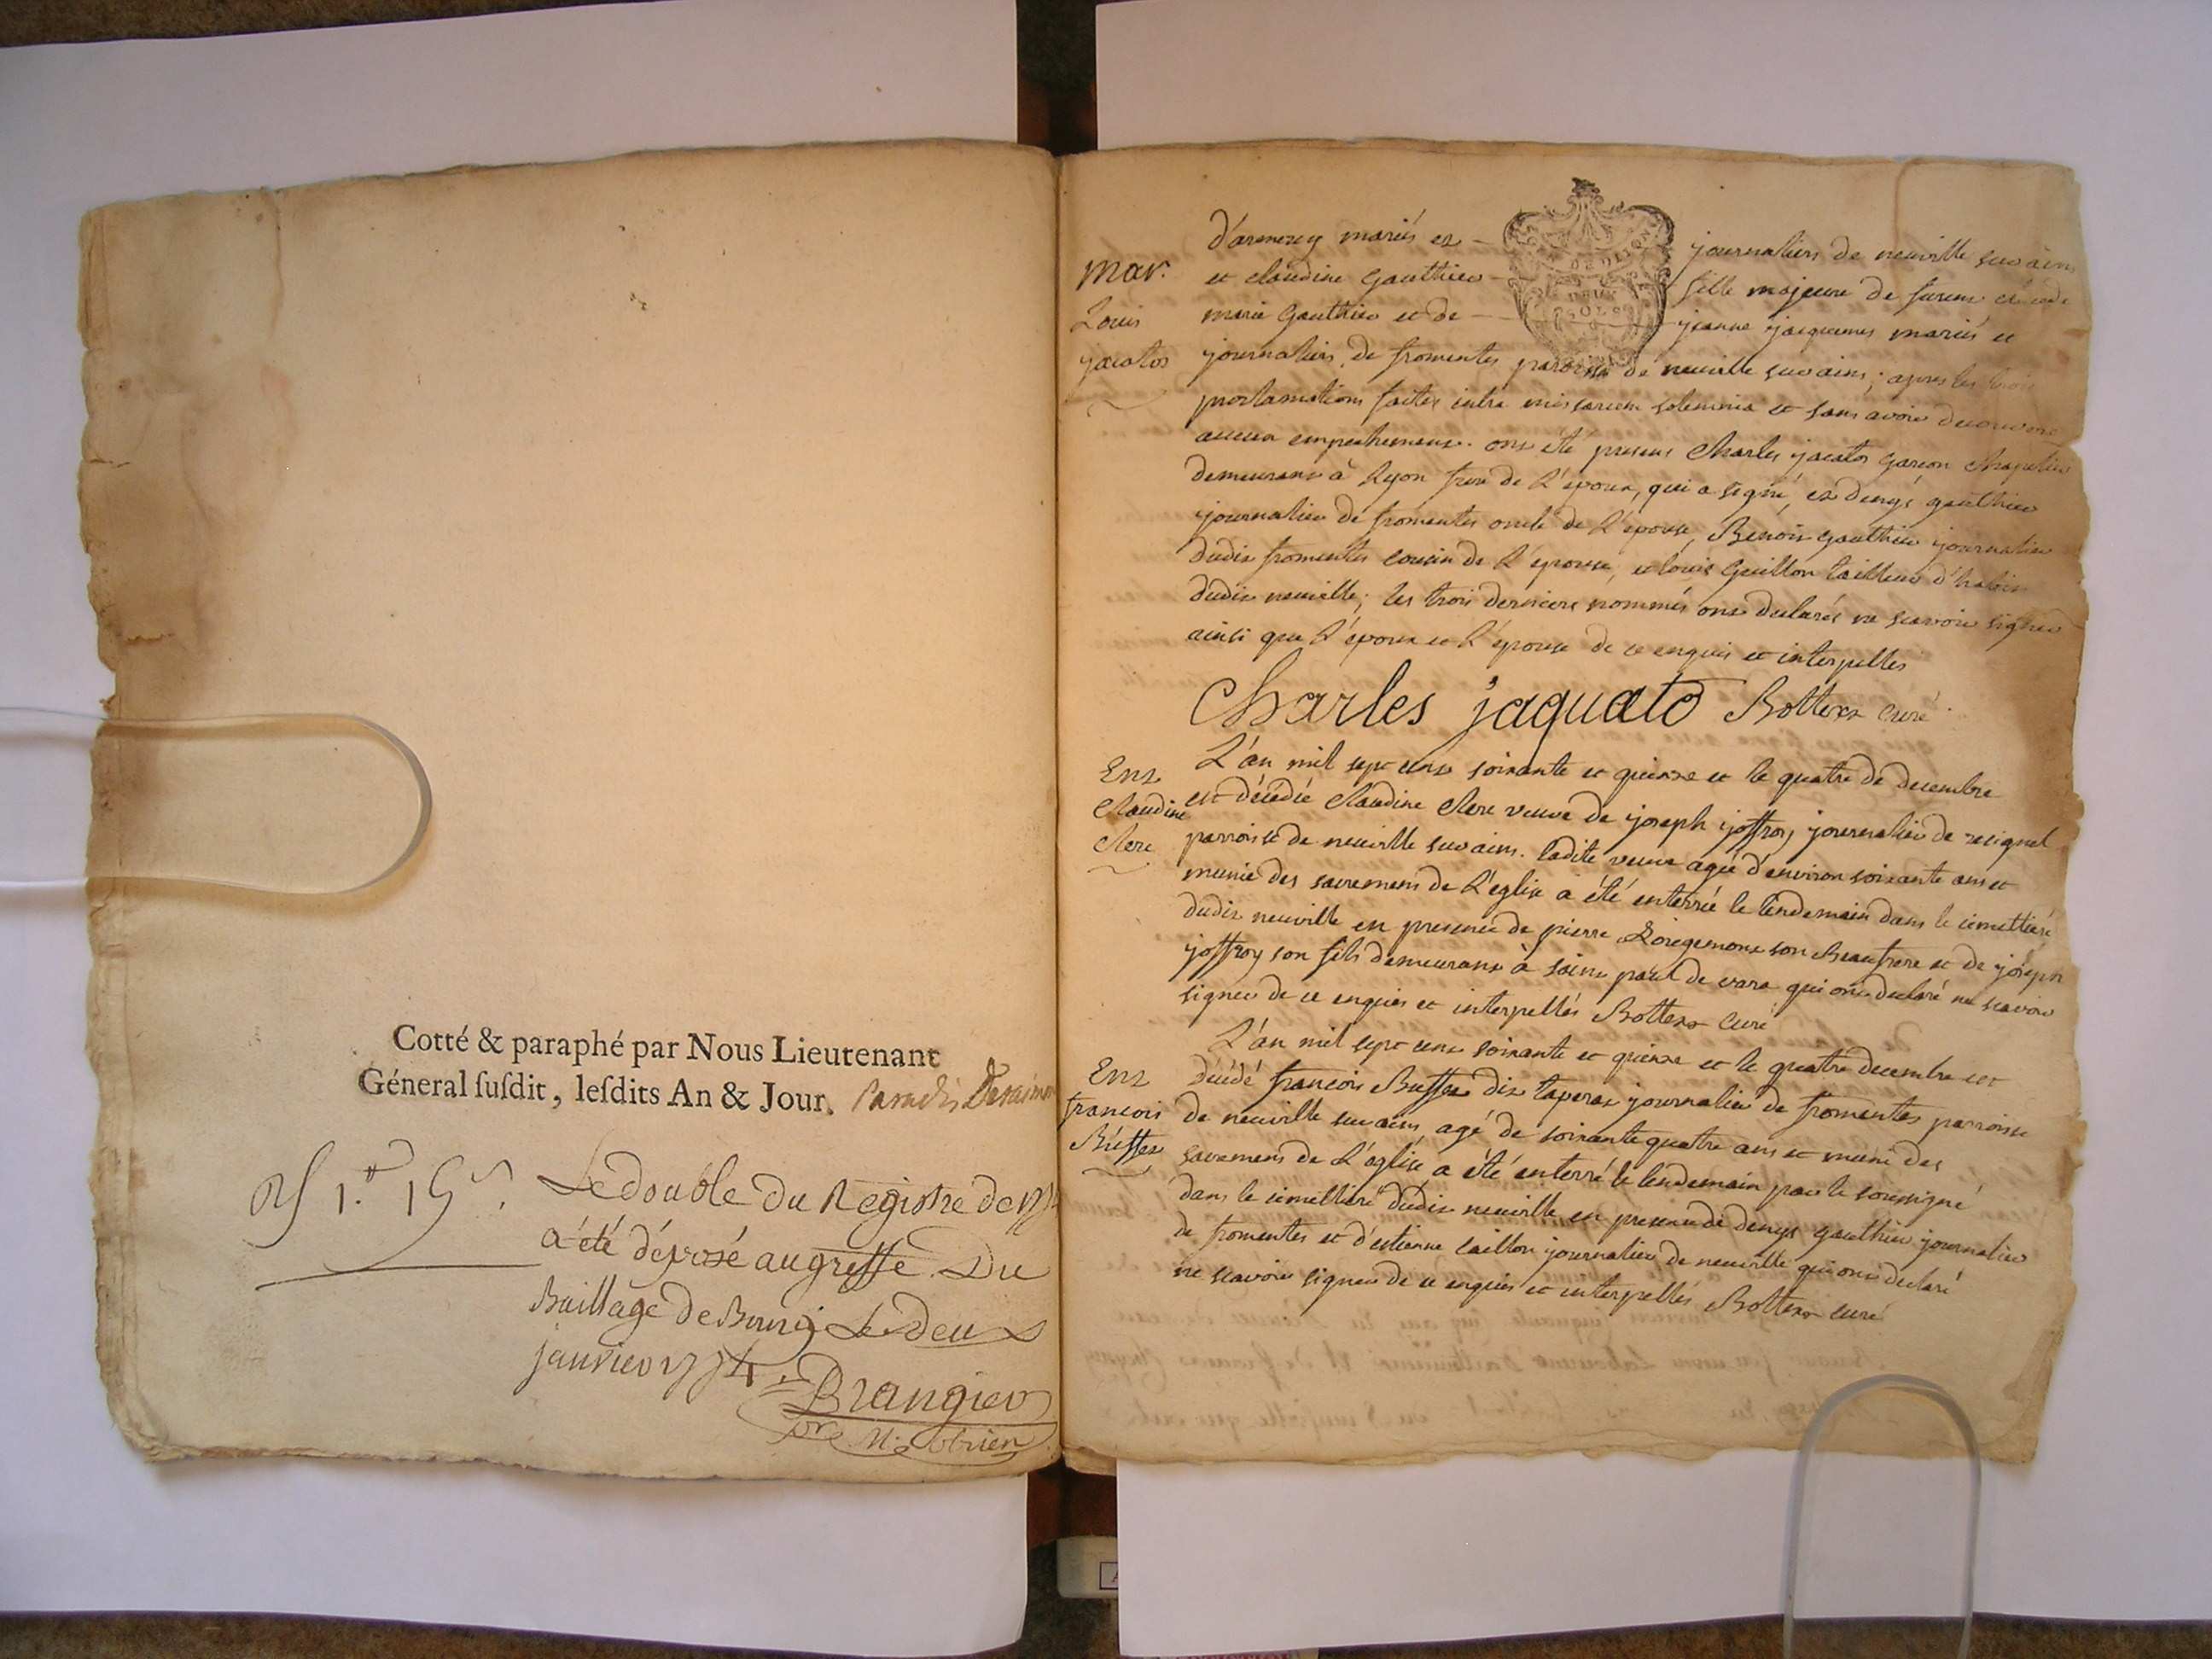 Cotté & paraphé par Nous Lieutenant
Géneral ſuſdit, leſdits An & Jour.
Le double du Registre de
a été déposé au greffe Du
Baillage de Bourg Le deux
janvier 1774
Brangier
mar.
Louis
yacatos
mariés et journaliers de neuville sur ains
et claudine Gauthier fille majeure de
marie Gauthier et de jeanne jacquemes mariés et
journaliers de fromentes paroisse de neuville sur ains; apres les trois
proclamations faites intra missarum solemnia et sans avoir decouvert
aucun empechement. ont été presens Charles yacatos Garcon Chapelier
demeurant à Lyon frere de L'epoux, qui a signé, et denys gauthier
journalier de fromentes oncle de L'epouse, Benoit Gauthier journalier
dudit fromentes cousin de L'epouse, et louis Guillon tailleur d'habits
dudit neuville; les trois derniers nommés ont declarés ne scavoir signer
ainsi que L'epoux et L'epouse de ce enquis et interpellés
Charles jaquato Bottex curé
Ent
Claudine
Clere
L'an mil sept cent soixante et quinze et le quatre de decembre
est décédée Claudine Clere veuve de joseph joffroy journalier de resignel
parroisse de neuville sur ains. ladite veuve agée d'environ soixante ans et
munie des sacremens de L'eglise a été enterrée le lendemain dans le cimettiere
dudit neuville en presence de pierre Loregemont son Beaufrere et de joseph
joffroy son fils demeurant à saint paul de varax qui ont declaré ne scavoir
signer de ce enquis et interpellés Bottex curé
Ent
francois
Buffet
L'an mil sept cent soixante et quinze et le quatre decembre est
décédé francois Buffet dit taperat journalier de fromentes parroisse
de neuville sur ains agé de soixante quatre ans et muni des
sacremens de L'eglise a été enterré le lendemain par le soussigné
dans le cimettiere dudit neuville en presence de denys gauthier journalier
de fromentes et d'estienne caillon journalier de neuville qui ont declaré
ne scavoir signer de ce enquis et interpellés Bottex curé